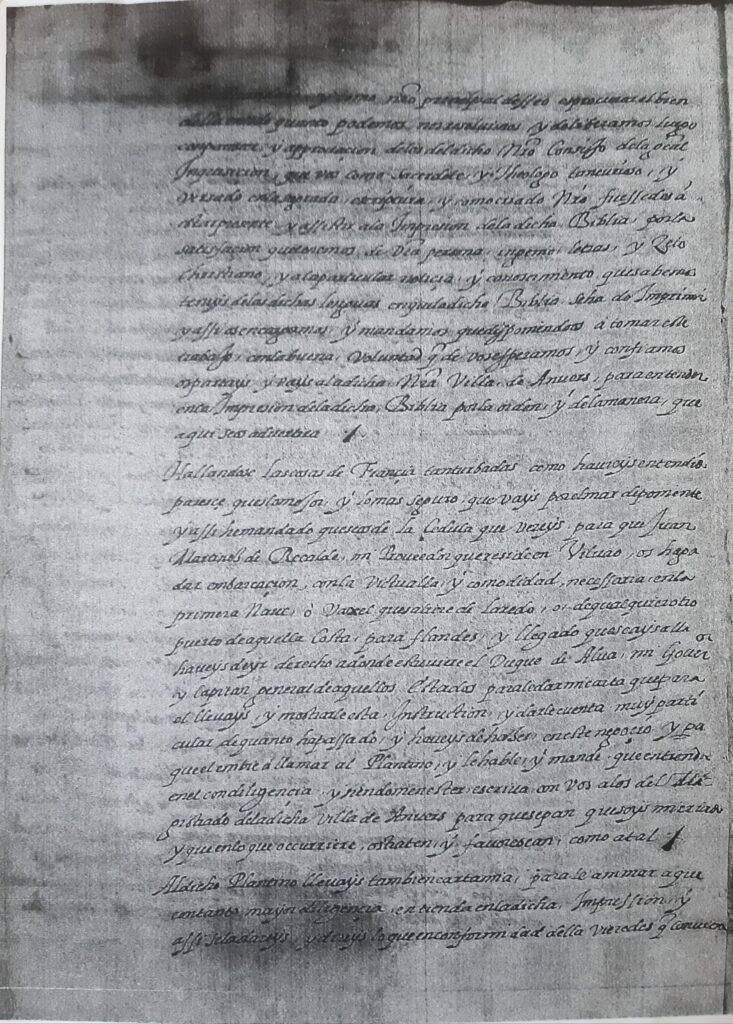 y como nr̃o principal desseo es procurar el bien
della en todo quanto podemos, nos resoluimos y deliberamos luego
con parecer y approbacion de los del dicho Nr̃o Consejo de la general
Inquisicion, que vos como Sacerdote, y Theologo tan curioso, y
versado en la sagrada escriptura, y como criado Nr̃o fuessedes a
estar presente y assistir a la Impresion de la dicha Biblia, por la
satisfacion que tenemos de Vr̃a persona, ingenio, letras, y Zelo
Christiano, y a la particular noticia, y conoscimiento que sabemos
teneys de las dichas lenguas en que la dicha Biblia se ha de Imprimir
y assi os encargamos y mandamos que disponiendoos a tomar este
trabajo, con la buena voluntad q̃ de vos esperamos, y confiamos
os partays y vays a la dicha Nr̃a Villa de Anvers, para entender
en la Impresion de la dicha Biblia por la orden, y de la manera, que
aqui se os advertira
Hallandose las cosas de Francia tan turbadas como havreys entendido
paresce que es lo mejor, y lo mas seguro que vays por el mar de poniente
y assi he mandado que se os de la Cedula que vereys para que Juan
Martinez de Recalde, mi Proveedor que reside en Viluao, os haga
dar embarcacion, con la victualla, y comodidad necessaria en la
primera Naue, o Vaxel que saliere de Laredo, o de qualquier otro
puerto de aquella Costa para flandes, y llegado que seays alla
haveys de yr derecho a donde estuviere el Duque de Alua, mi Gouor
y Capitan general de aquellos Estados para le dar mi carta que para
el lleuays, y mostrarle esta Instruction, y darle cuenta muy parti
cular de quanto ha passado, y haveys de hazer en este negocio, y pa
que el embie a llamar al Plantino, y le hable, y mande, que entienda
en el con diligencia, y siendo menester escriva con vos a los del Ma
gistrado de la dicha villa de Anvers para que sepan que soys mi criado
y que en lo que occurriere, os traten, y favorescan, como a tal
Al dicho Plantino lleuays tambien carta mia, para le animar a que
con tanto mayor diligencia, entienda en la dicha Impression, y
assi se la dareys, y direys lo que en conformidad della vieredes q̃ convierne